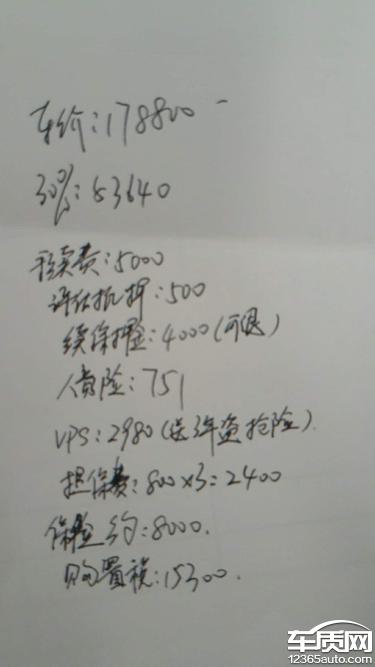 车价:178800
30%:53640
手续费:5000
评估抵押:500
续保押金:4000(可退)
人贷险:751
VPS:2980(送3年盗抢险).
担保费:800×3=2400
保险约:8000.
购置税:15300.
车质网
12365auto.com